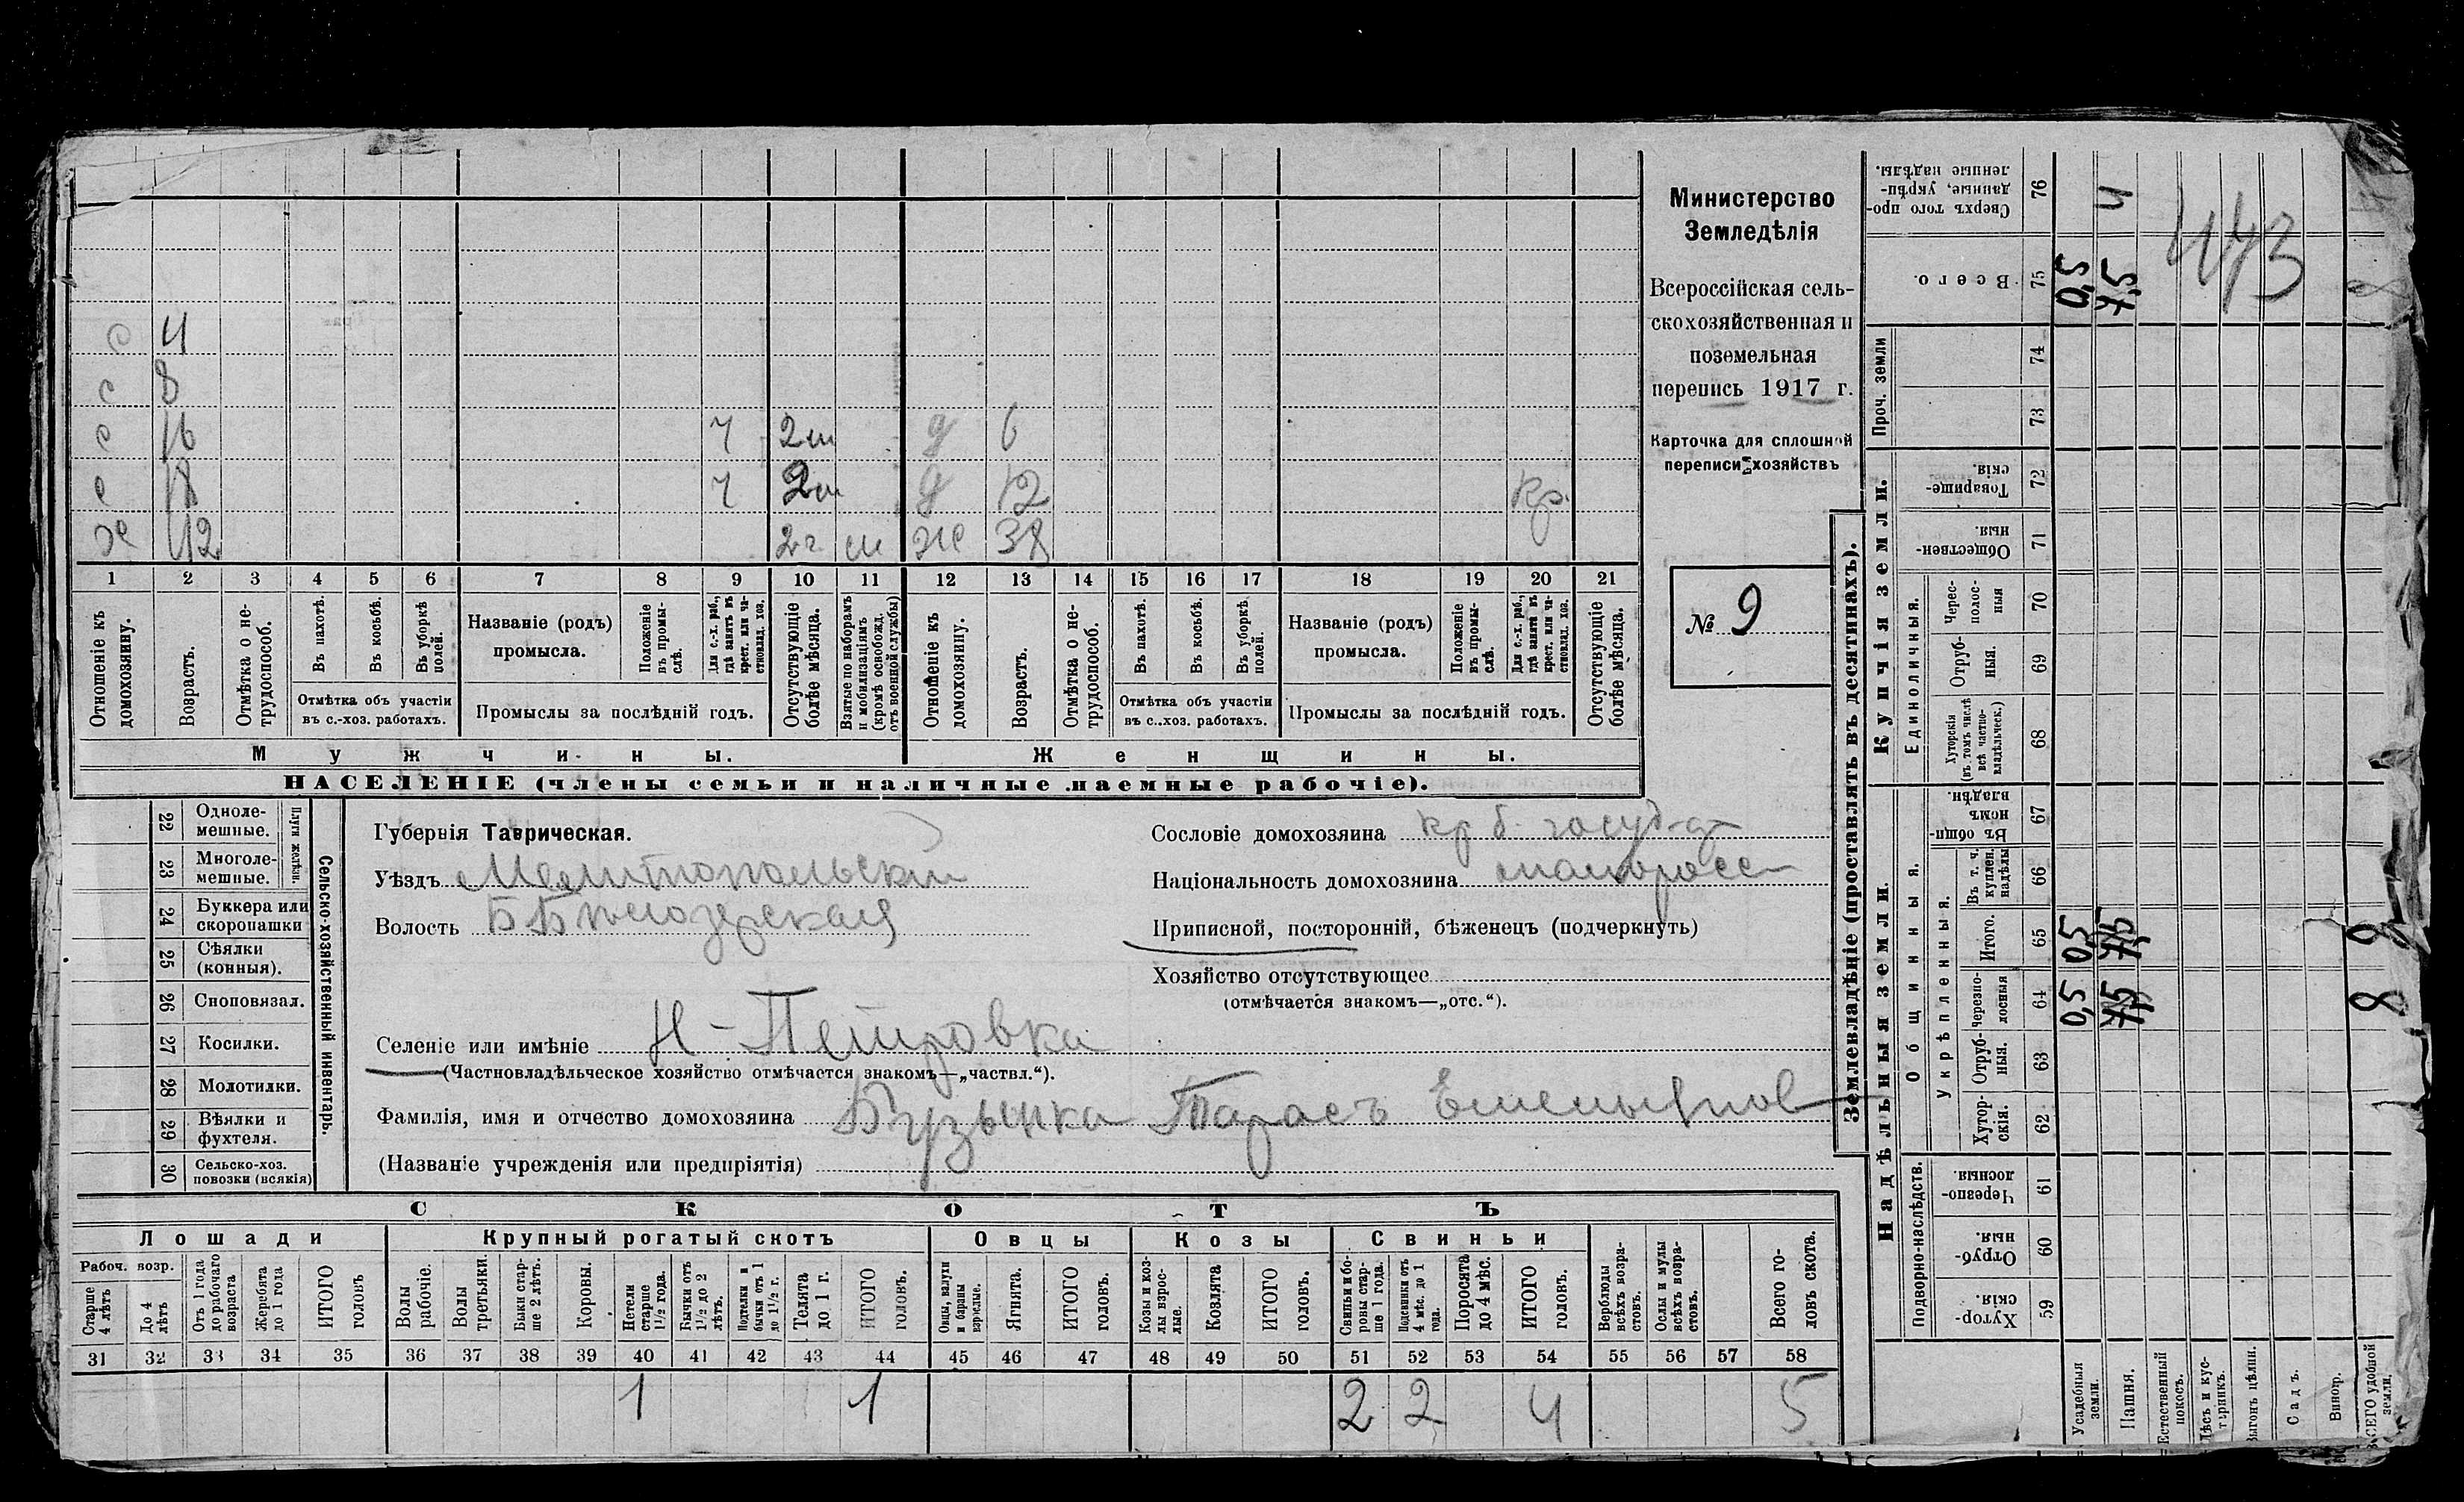 с 4
с 8
с 16 ч 2м д 6
с 18 ч 2м д 12 кр.
х 42 2г м ж 38
1 2 3 4 5 6 7 8 9 10 11 12 13 14 15 16 17 18 19 20 21
Отношеніе къ домохозяину.
Возрастъ.
Отмѣтка о не-
трудоспособ.
Въ пахотѣ.
Въ косьбѣ.
Въ уборкѣ
полей.
Отмѣтка объ участіи
въ с.-хоз. работахъ.
Названіе (родъ)
промысла.
Положеніе
въ промы-
слѣ.
Для с.-х. раб.,
гдѣ занятъ въ
крест. или ча-
стновлад. хоз.
Промыслы за послѣдній годъ.
Отсутствующіе
болѣе мѣсяца.
Взятые по наборамъ
и мобилизаціямъ
(кромѣ освобожд.
отъ военной службы)
Отношеніе къ
домохозяину.
Возрастъ.
Отмѣтка о не-
трудоспособ.
Въ пахотѣ.
Въ косьбѣ.
Въ уборкѣ
полей.
Отмѣтка объ участіи
въ с..хоз. работахъ.
Названіе (родъ)
промысла.
Положеніе
въ промы-
слѣ.
Для с.-х. раб.,
гдѣ занята въ
крест. или ча-
стновлад. хоз.
Промыслы за послѣдній годъ.
Отсутствующіе
болѣе мѣсяца.
Мужчины.
Женщины.
НАСЕЛЕНІЕ (члены семьи и наличные наемные рабочіе).
Министерство
Земледѣлія
Всероссійская сель-
скохозяйственная и
поземельная
перепись 1917 г.
Карточка для сплошной
переписи хозяйствъ
№ 9
22 Одноле-
мешные.
23 Многоле-
мешные.
Плуги желѣзн.
24 Буккера или
скоропашки
25 Сѣялки
(конныя).
26 Сноповязал.
27 Косилки.
28 Молотилки.
29 Вѣялки и
фухтеля.
30 Сельско-хоз.
повозки (всякія)
Сельско-хозяйственный инвентарь.
Губернія Таврическая.
Уѣздъ Мелитопольскій
Волость Б Бѣлозерская
Сословіе домохозяина кр б. госуд-д
Національность домохозяина малоросс
Приписной, посторонній, бѣженецъ (подчеркнуть)
Хозяйство отсутствующее
(отмѣчается знакомъ—„отс.“).
Селеніе или имѣніе Н-Петровка
(Частновладѣльческое хозяйство отмѣчается знакомъ—„частвл.“).
Фамилія, имя и отчество домохозяина Бузынка Тарасъ Емельянов
(Названіе учрежденія или предпріятія)
СКОТЪ
Лошади
Крупный рогатый скотъ
Овцы
Козы
Свиньи
Рабоч. возр.
Старше
4 лѣтъ
До 4
лѣтъ
Отъ 1 года
до рабочаго
возраста
Жеребята
до 1 года
ИТОГО
головъ
Волы
рабочіе.
Волы
третьяки.
Быки стар-
ше 2 лѣтъ.
Коровы.
Нетели
старше
1½ года.
Бычки отъ
1½ до 2
лѣтъ.
Подтелки и
бычки отъ 1
до 1½ г.
Телята
до 1 г.
ИТОГО
головъ.
Овцы, валухи
и бараны
взрослые.
Ягнята.
ИТОГО
головъ.
Козы и коз-
лы взрос-
лые.
Козлята
ИТОГО
головъ.
Свиньи и бо-
ровы стар-
ше 1 года.
Подсвинки отъ
4 мѣс. до 1
года.
Поросята
до 4 мѣс.
ИТОГО
головъ.
Верблюды
всѣхъ возра-
стовъ.
Ослы и мулы
всѣхъ возра-
стовъ.
Всего го-
ловъ скота.
31 32 33 34 35 36 37 38 39 40 41 42 43 44 45 46 47 48 49 50 51 52 53 54 55 56 57 58
1 1 2 2 4 5
Землевладѣніе (проставлять въ десятинахъ).
Купчія земли.
Надѣльныя земли.
Сверхъ того про-
данные, укрѣп-
ленные надѣлы.
76
4
Всего.
75
0,5
7,5
443
Проч. земли
74
73
Товарище-
скія.
72
Обществен-
ныя.
71
Единоличныя.
Черес-
полос-
ныя
70
Отруб-
ныя.
69
Хуторскія
(въ томъ числѣ
всѣ частно-
владѣльческ.)
68
Общинныя.
Въ общи-
номъ
владѣн.
67
Укрѣпленныя.
Въ т. ч.
куплен.
надѣлы
66
Итого.
65
0,5
7,5
8
Черезпо-
лосныя
64
0,5
7,5
8
Отруб-
ныя.
63
Хутор-
скія.
62
Подворно-наслѣдств.
Черезпо-
лосныя
61
Отруб-
ныя.
60
Хутор-
скія
59
Усадебныя
земли.
Пашня.
Естественный
покосъ.
Лѣсъ и кус-
тарникъ.
Выгонъ цѣлин.
Садъ.
Виногр.
ВСЕГО удобной
земли.